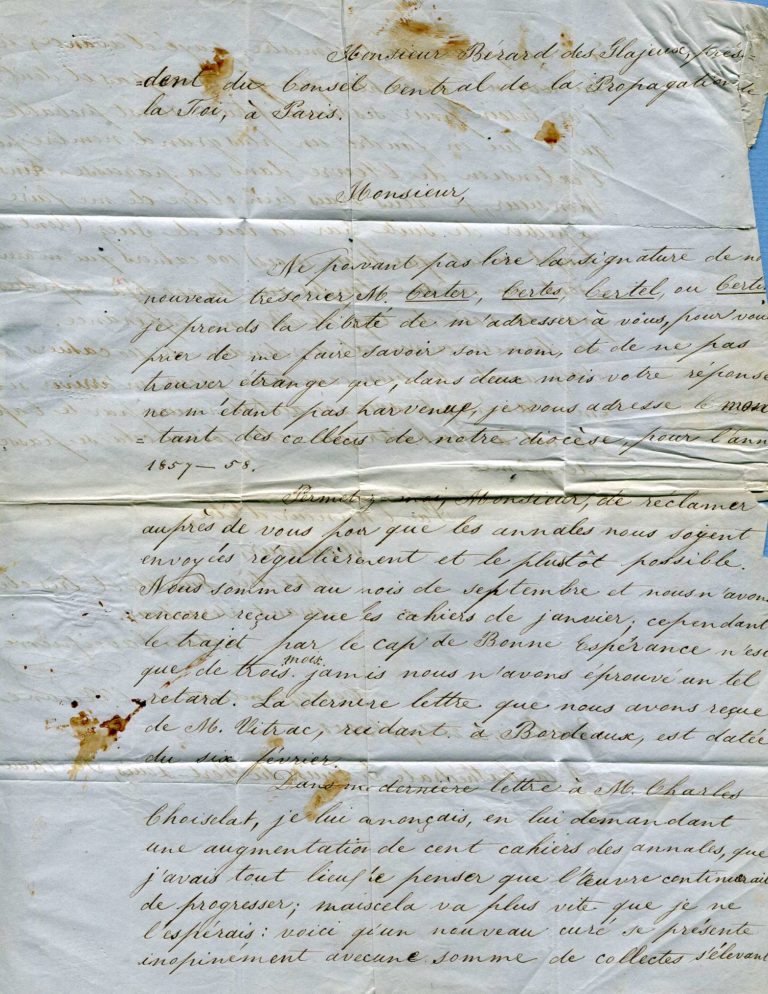 Monsieur Berard des Glajeux, prési-
=dent du Conseil Central de la Propagation de
la Foi, à Paris.
Monsieur,
Ne povant pas lire la signature de no
nouveau trésorier M. Certer, Certes, Certel, ou Certe
je prends la liberté de m'adresser à vous, pour vou
prier de me faire savoir son nom, et de ne pas
trouver étrange que, dans deux mois votre réponse
ne m'étant pas parvenue, je vous adresse le mon
=tant des collectes de notre diocèse, pour l'ann
1857–58.
Permettez-moi, Monsieur, de réclamer
auprès de vous pour que les annales nous soyent
envoyés régulièrement et le plustôt possible.
Nous sommes au mois de septembre et nous n'avons
encore reçu que les cahiers de janvier; cependant
le trajet par le cap de Bonne Espérance n'est
que de trois mois. jamais nous n'avons éprouvé un tel
retard. La dernière lettre que nous avons reçue
de M. Vitrac, residant à Bordeaux, est datée
du six février.
Dans ma dernière lettre à M. Charles
Choiselat, je lui anonçais, en lui demandant
une augmentation de cent cahiers des annales, que
j'avais tout lieu de penser que l'Œuvre continuerait
de progresser; mais cela va plus vite que je ne
l'espérais: voici qu'un nouveau curé se présente
inopinément avec une somme de collectes s'élevant